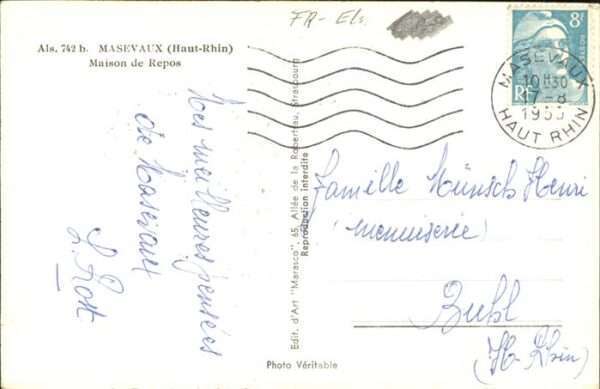 FR-Els
Als. 742 b. MASEVAUX (Haut-Rhin)
Maison de Repos
Mes meilleures pensées
de Masevaux
L. Rost
Edit. d'Art "Marasco", 65, Allée de la Robertsau, Strasbourg
Reproduction interdite
Photo Véritable
8F
RF
MASEVAUX
10 H30
17-8
1953
HAUT RHIN
Famille Münsch Henri
(menuiserie)
Buhl
(Ht-Rhin)